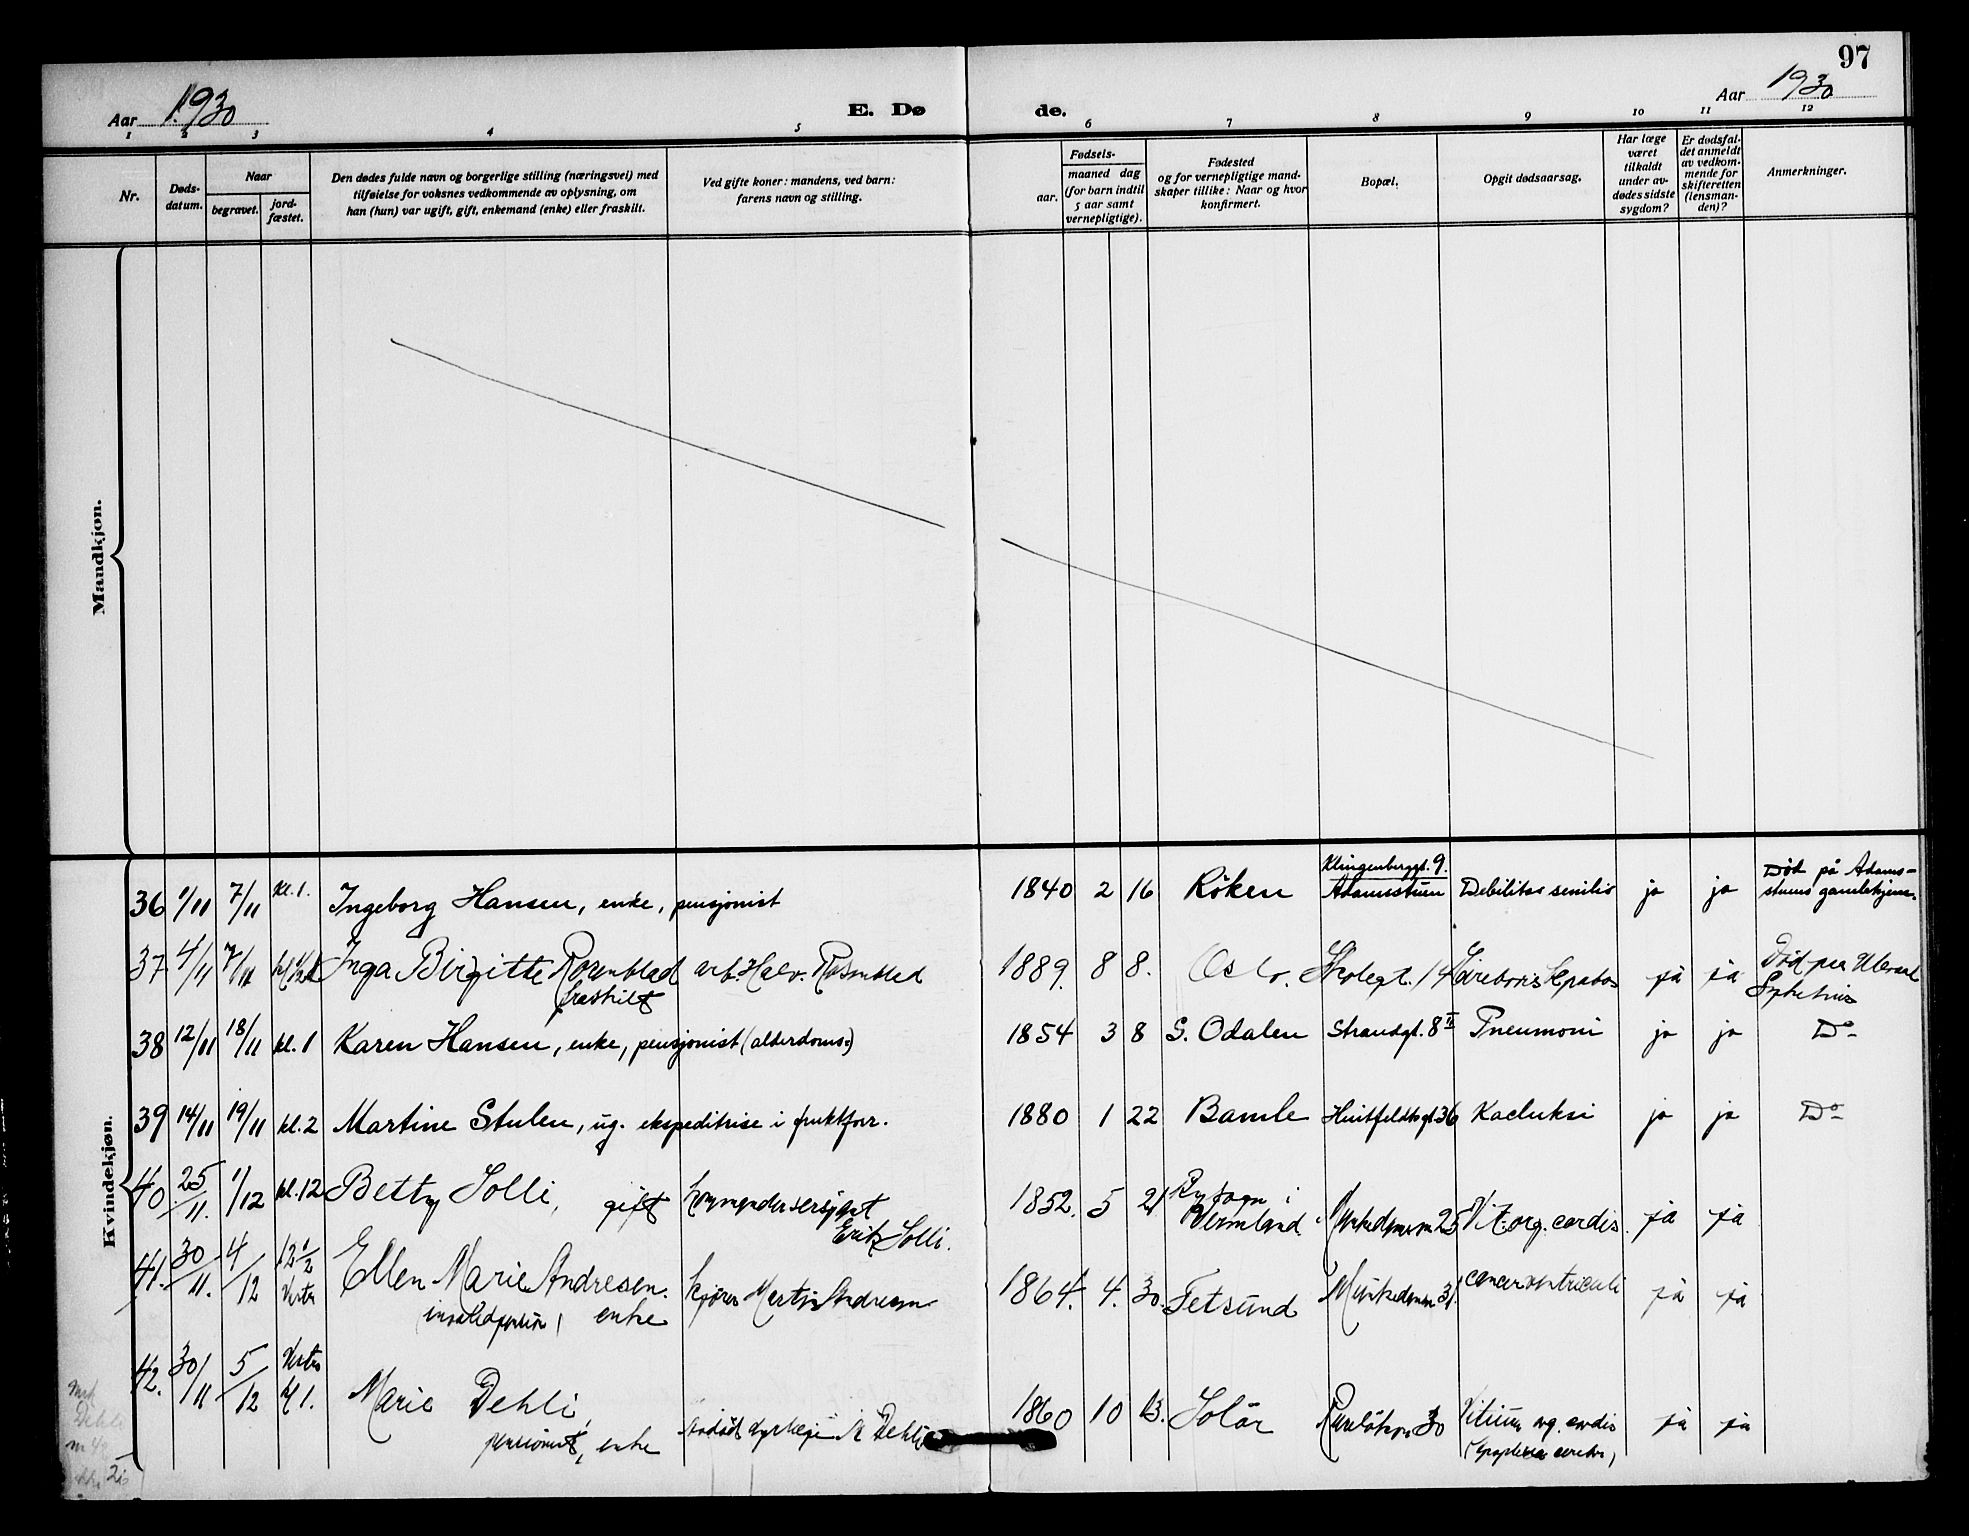 97
Aar 1930
E. Dø de.
Aar 1930
1 2 3 4 5 6 7 8 9 10 11 12
Nr.
Døds-
datum.
Naar
begravet.
jord-
fæstet.
Den dødes fulde navn og borgerlige stilling (næringsvei) med
tilføielse for voksnes vedkommende av oplysning, om
han (hun) var ugift, gift, enkemand (enke) eller fraskilt.
Ved gifte koner: mandens, ved barn:
farens navn og stilling.
Fødsels-
aar.
maaned dag
(for barn indtil
5 aar samt
vernepligtige).
Fødested
og for vernepligtige mand-
skaper tillike: Naar og hvor
konfirmert.
Bopæl.
Opgit dødsaarsag.
Har læge
været
tilkaldt
under av-
dødes sidste
sygdom?
Er dødsfal-
det anmeldt
av vedkom-
mende for
skifteretten
(lensman-
den)?
Anmerkninger.
Mandkjøn.
Kvindekjøn.
36 1/11 7/11 kl. 1. Ingeborg Hansen, enke, pensjonist 1840 2 16 Röken Klingenberggt. 9.
Adamstuen Debilitas senilis ja ja Död på Adams-
stuens gamlehjem.
37 4/11 7/11 Inga Birgitte Rosenblad arb. Halv. Rosenblad 1889. 8 8. Oslo. ja ja
fraskilt
38 12/11 18/11 kl. 1 Karen Hansen, enke, pensjonist (alderdoms.) 1854 3 8 S. Odalen Strandgt. 8 II Pneumoni ja ja Do
39 14/11 19/11 kl. 2 Martine Stulen, ug. ekspeditrise i fruktforr. 1880 1 22 Bamle Huitfeldtsgt 36 ja ja Do
40 25/11. 1/12 kl. 12 Betty Solli, gift
Erik Solli. 1852. 5 21 i
Vermland. 25 Vit. org. cordis. ja ja
41. 30/11. 4/12 12 1/2
Vestre Ellen Marie Andresen. Martin Andresen 1864. 4. 30. Fetsund 31. cancer ventriculi ja ja
enke
42. 30/11 5/12 Vestre
kl 1. Marie Dehli, 1860 10 13. Solör 30 Vitium org. cordis ja ja
pensionist, enke Dehli
Dehli